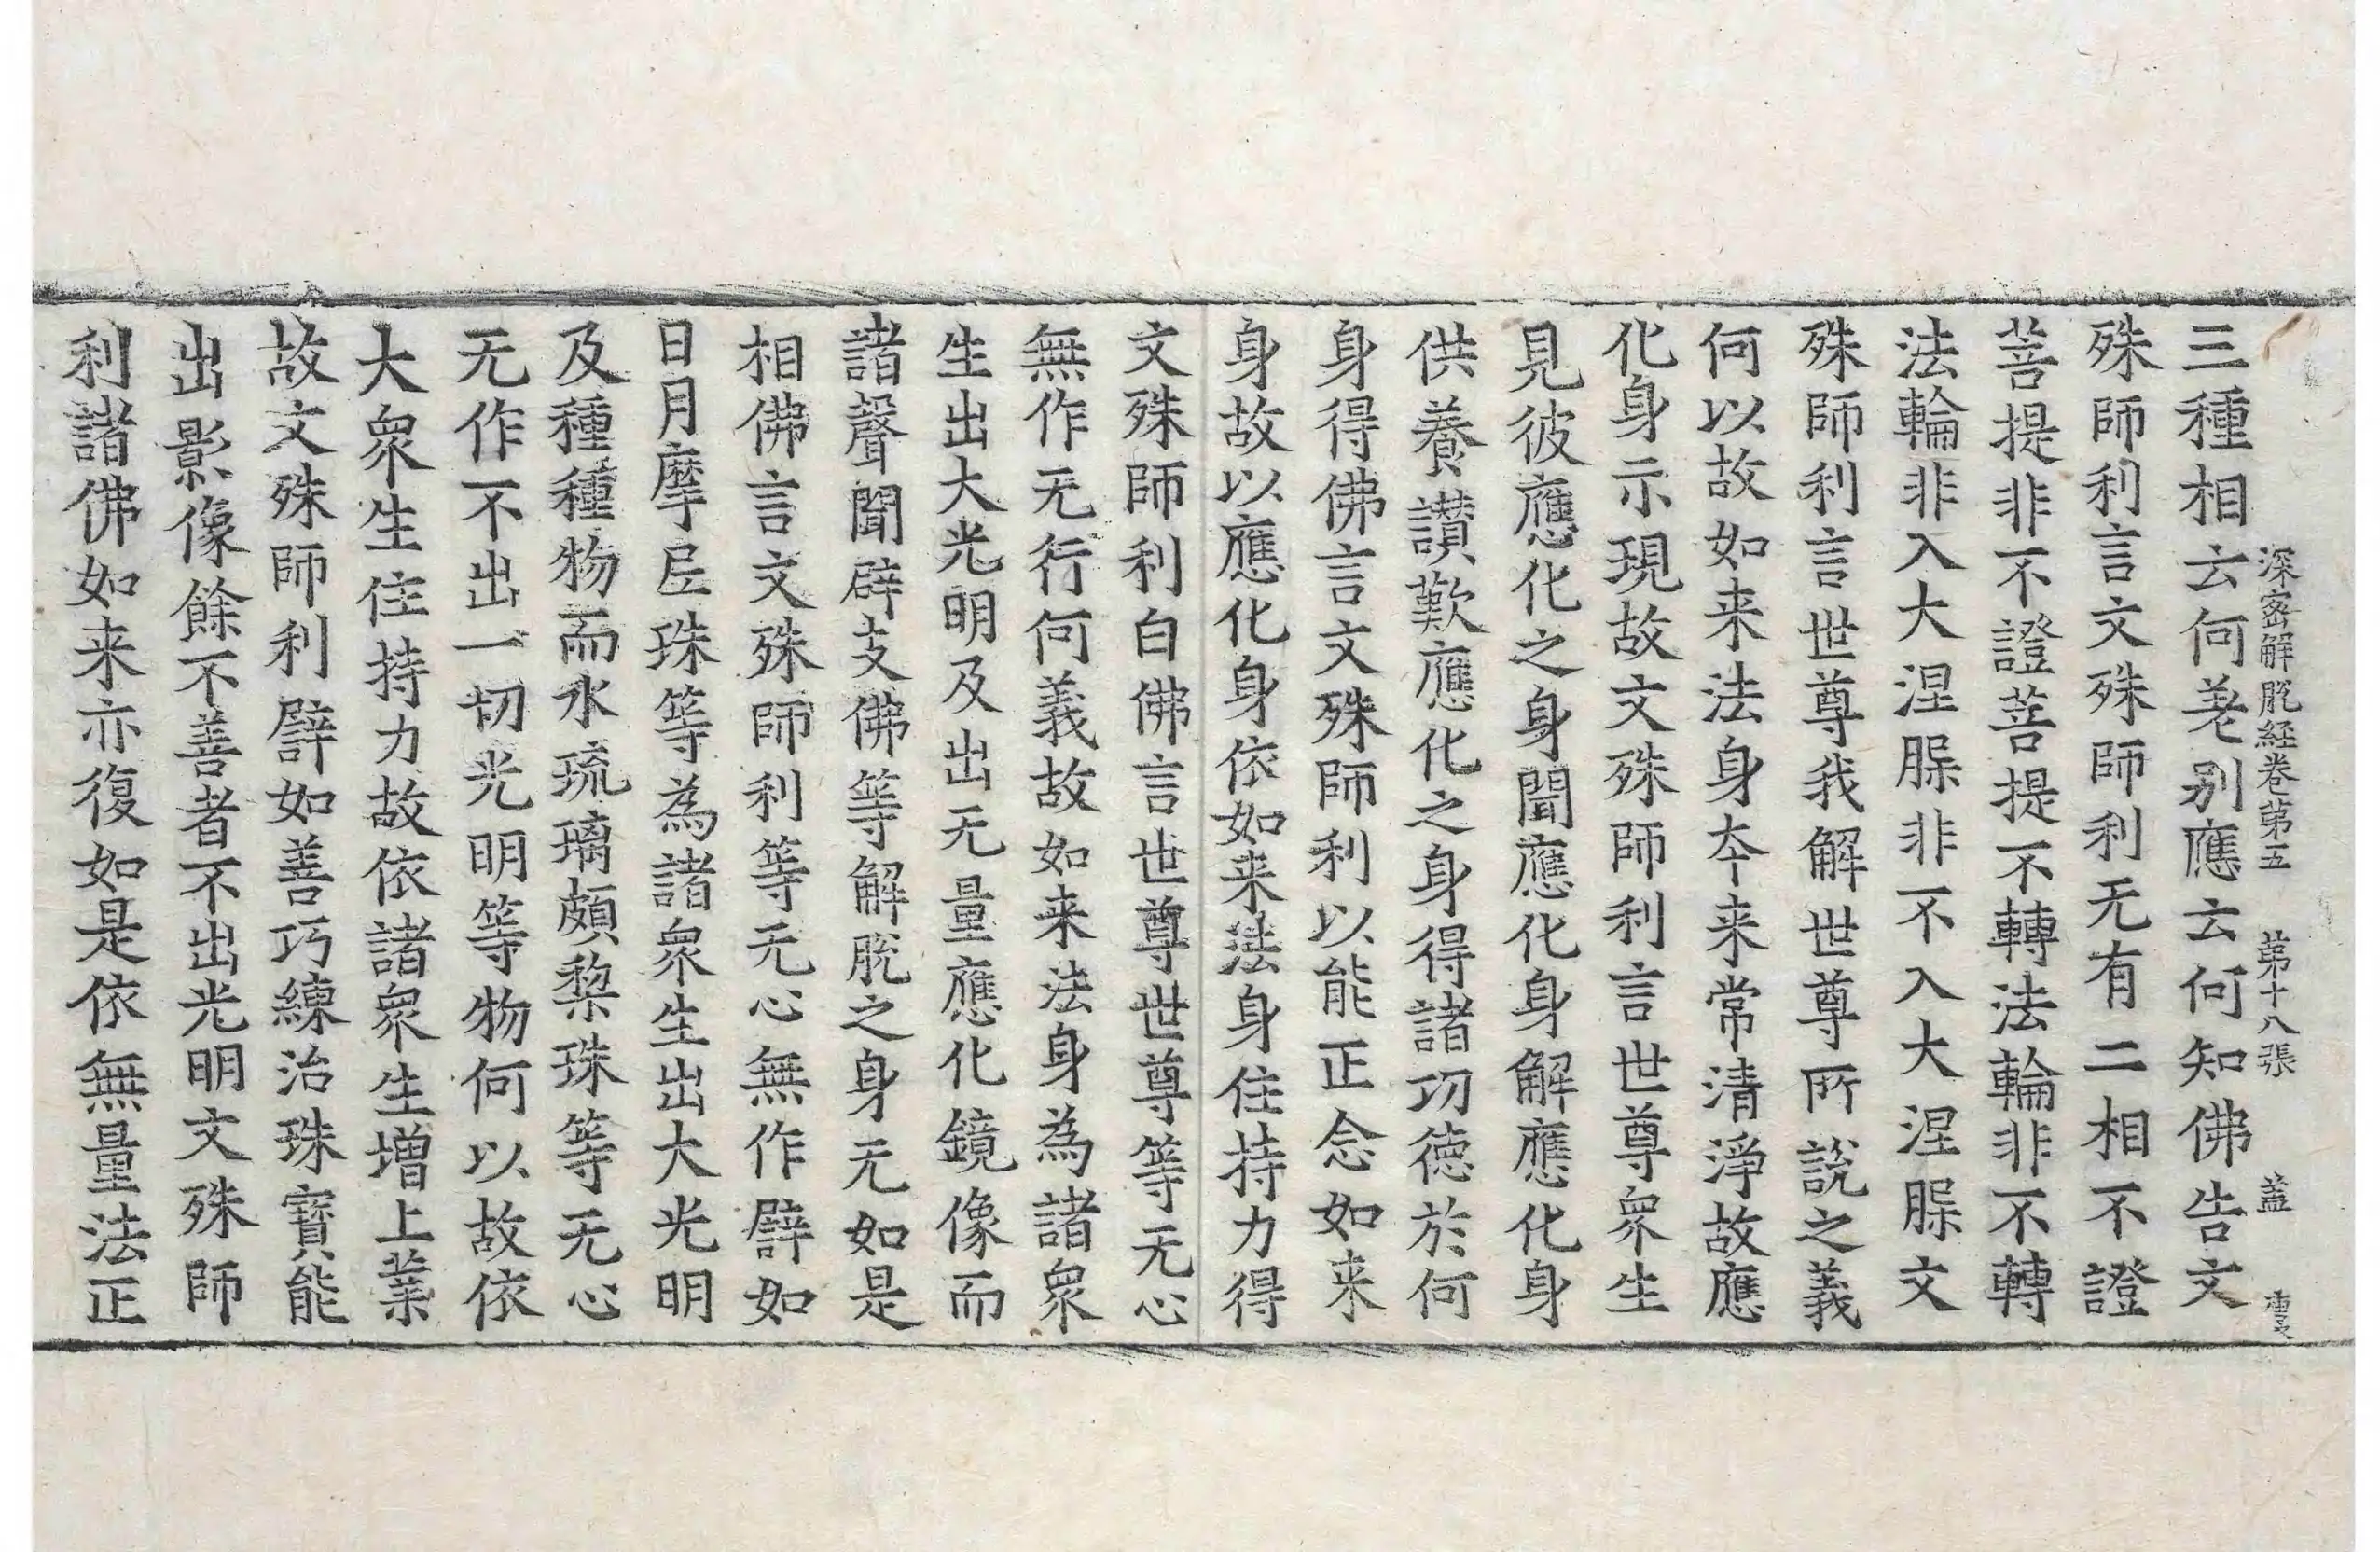 深密解脫経卷第五　第十八張　蓋
三種相云何差别應云何知佛告文
殊師利言文殊師利无有二相不證
菩提非不證菩提不轉法輪非不轉
法輪非入大涅槃非不入大涅槃文
殊師利言世尊我解世尊所說之義
何以故如来法身本来常清淨故應
化身示現故文殊師利言世尊衆生
見彼應化之身聞應化身解應化身
供養讃歎應化之身得諸功徳於何
身得佛言文殊師利以能正念如来
身故以應化身依如来法身住持力得
文殊師利白佛言世尊世尊等无心
無作无行何義故如来法身為諸衆
生出大光明及出无量應化鏡像而
諸聲聞辟支佛等解脫之身无如是
相佛言文殊師利等无心無作譬如
日月摩尼珠等為諸衆生出大光明
及種種物而水琉璃頗梨珠等无心
无作不出一切光明等物何以故依
大衆生住持力故依諸衆生增上業
故文殊師利譬如善巧練治珠寳能
出影像餘不善者不出光明文殊師
利諸佛如来亦復如是依無量法正